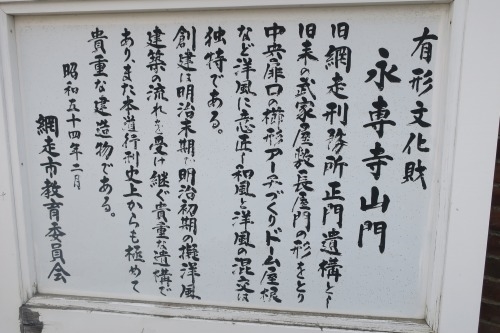 有形文化財
永専寺山門
旧網走刑務所正門遺構とし
旧来の武家屋敷長屋門の形をとり
中央扉口の櫛形アーチづくりドーム屋根
など洋風に意匠し和風と洋風の混交は
独特である。
創建は明治末期だが明治初期の擬洋風
建築の流れを受け継ぐ貴重な遺構で
あり、また本道行刑史上からも極めて
貴重な建造物である。
昭和五十四年二月
網走市教育委員会